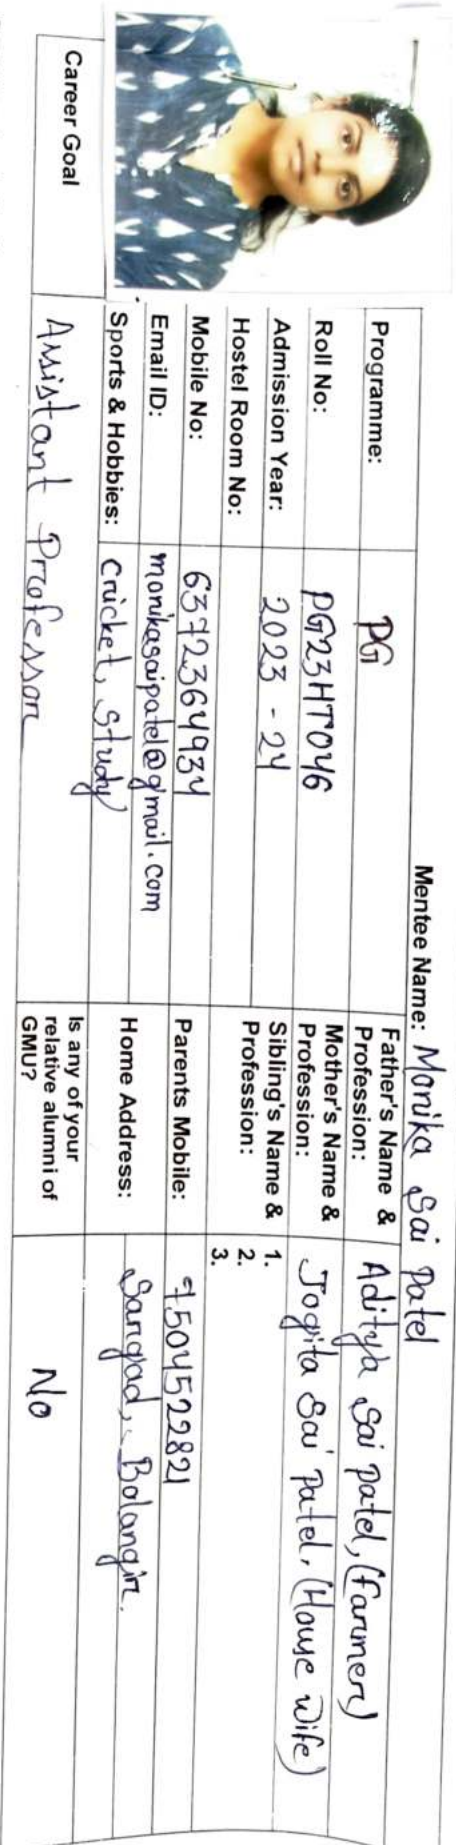 Mentee Name: Monika Sai Patel
Programme: PG
Father's Name & Profession: Aditya Sai patel, (farmer)
Roll No: PG23HT046
Mother's Name & Profession: Jogita Sai patel, (House wife)
Admission Year: 2023 - 24
Sibling's Name & Profession: 1.
2.
3.
Hostel Room No:
Mobile No: 6372364934
Parents Mobile: 7504522821
Email ID: monikasaipatel@gmail.com
Home Address: Sargad, Bolangir.
Sports & Hobbies: cricket, study
Career Goal Assistant Professor
Is any of your relative alumni of GMU? No